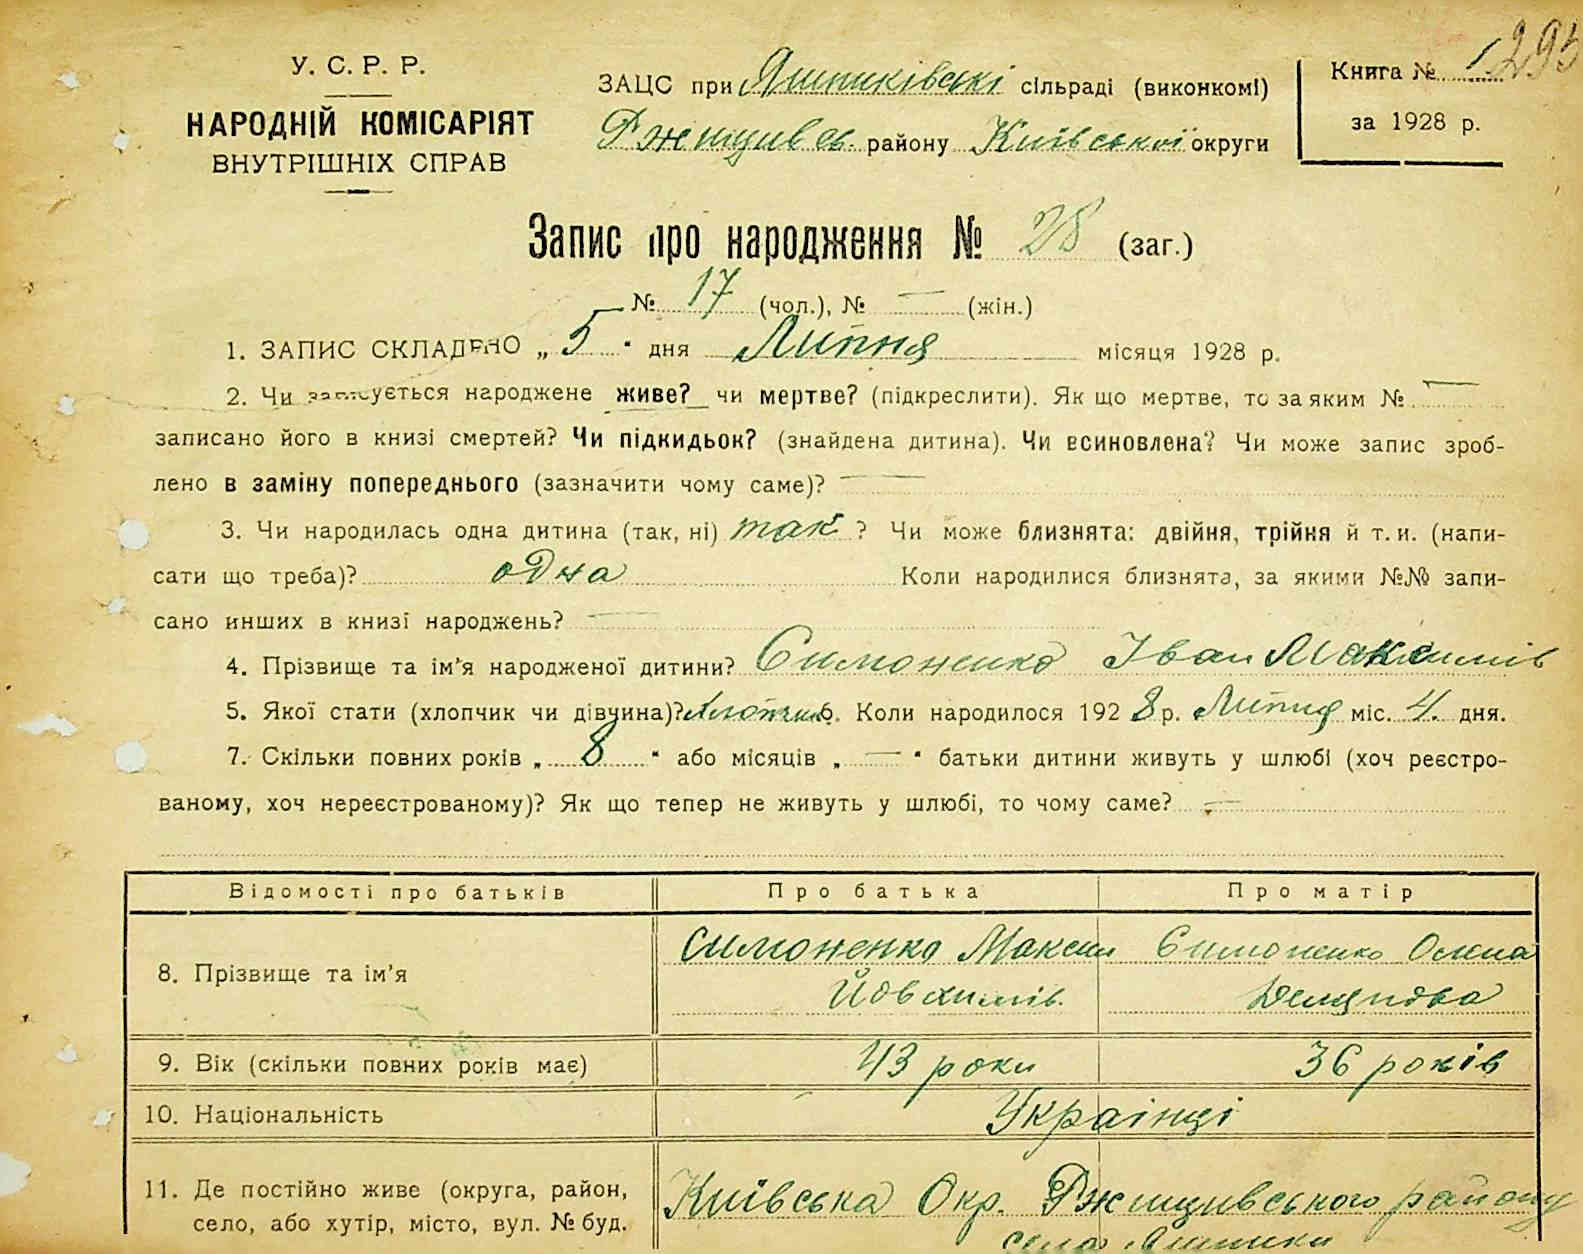 295
У. С. Р. Р.
НАРОДНІЙ КОМІСАРІЯТ
ВНУТРІШНІХ СПРАВ
ЗАЦС при Яшниківські сільраді (виконкомі)
Ржищивсь. району Київської округи
Книга № 1
за 1928 р.
Запис про народження № 28 (заг.)
№ 17 (чол.), № — (жін.)
1. ЗАПИС СКЛАДЕНО „ 5 “ дня Липня місяця 1928 р.
2. Чи записується народжене живе? чи мертве? (підкреслити). Як що мертве, то за яким № —
записано його в книзі смертей? Чи підкидьок? (знайдена дитина). Чи всиновлена? Чи може запис зроб-
лено в заміну попереднього (зазначити чому саме)? —
3. Чи народилась одна дитина (так, ні) так ? Чи може близнята: двійня, трійня й т. и. (напи-
сати що треба)? одна Коли народилися близнята, за якими №№ запи-
сано инших в книзі народжень? —
4. Прізвище та ім’я народженої дитини? Симоненко Іван Максимів
5. Якої стати (хлопчик чи дівчина)? хлопчик 6. Коли народилося 1928 р. Липня міс. 4. дня.
7. Скільки повних років „ 8 “ або місяців „ — “ батьки дитини живуть у шлюбі (хоч реєстро-
ваному, хоч нереєстрованому)? Як що тепер не живуть у шлюбі, то чому саме? —
Відомості про батьків Про батька Про матір
8. Прізвище та ім’я Симоненко Максим Йовхимів. Симоненко Олена Демидова
9. Вік (скільки повних років має) 43 роки 36 років
10. Національність Українці
11. Де постійно живе (округа, район, Київська Окр. Ржищивського району
село, або хутір, місто, вул. № буд. села